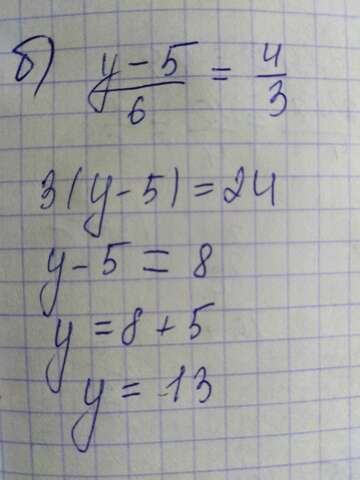 б) y-5/6 = 4/3
3(y-5)=24
y-5=8
y=8+5
y=13